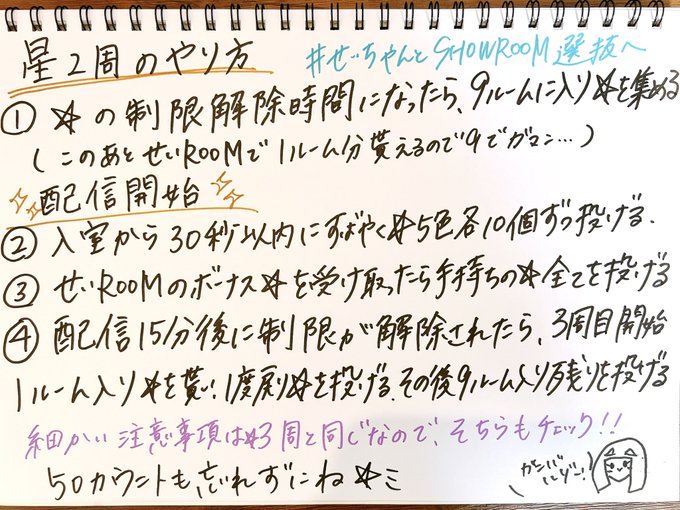 星2周のやり方
#せいちゃんとSHOWROOM選抜へ
① ☆の制限解除時間になったら、9ルームに入り☆を集める
(このあとせいROOMで1ルーム分貰えるので9でガマン…)
配信開始
② 入室から30秒以内にすばやく☆5色各10個ずつ投げる.
③ せいROOMのボーナス☆を受け取ったら手持ちの☆全てを投げる
④ 配信15分後に制限が解除されたら、3周目開始
1ルーム入り☆を貰い、1度戻り☆を投げる、その後9ルーム入り残りを投げる
細かい注意事項は☆3周と同じなので、そちらもチェック!!
50カウントも忘れずにね☆ミ
ガンバルゾー!